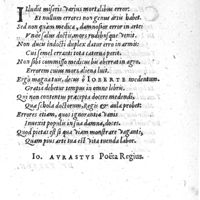 Illudit miseris varius mortalibus error:
Et nullum errores non genus artis habet.
Sed non quem medica, damnosior error in arte:
Vnde salus doctis, mors rudibusque venit.
Non ducis indocti duplex datur error in armis:
Cui semel erranti tota caterua perit.
Non sibi commisso medicus bis aberrat in agro.
Errorem cuius mors aliena luit.
Ergo magnatur, docte ô IOBERTE medentum.
Gratia debetur tempus in omne libris.
Qui non contentus præcepta docere medendi,
Quæ schola doctorum, Regis & aula probet:
Errores etiam, quos ignorantia vanis
Inuexit populis insua damna, doces.
Quod pietas est si qua viam monstrare vaganti,
Quam pius arte tua est vita tuenda, liber.
Io. AVRATVS Poëta Regius.